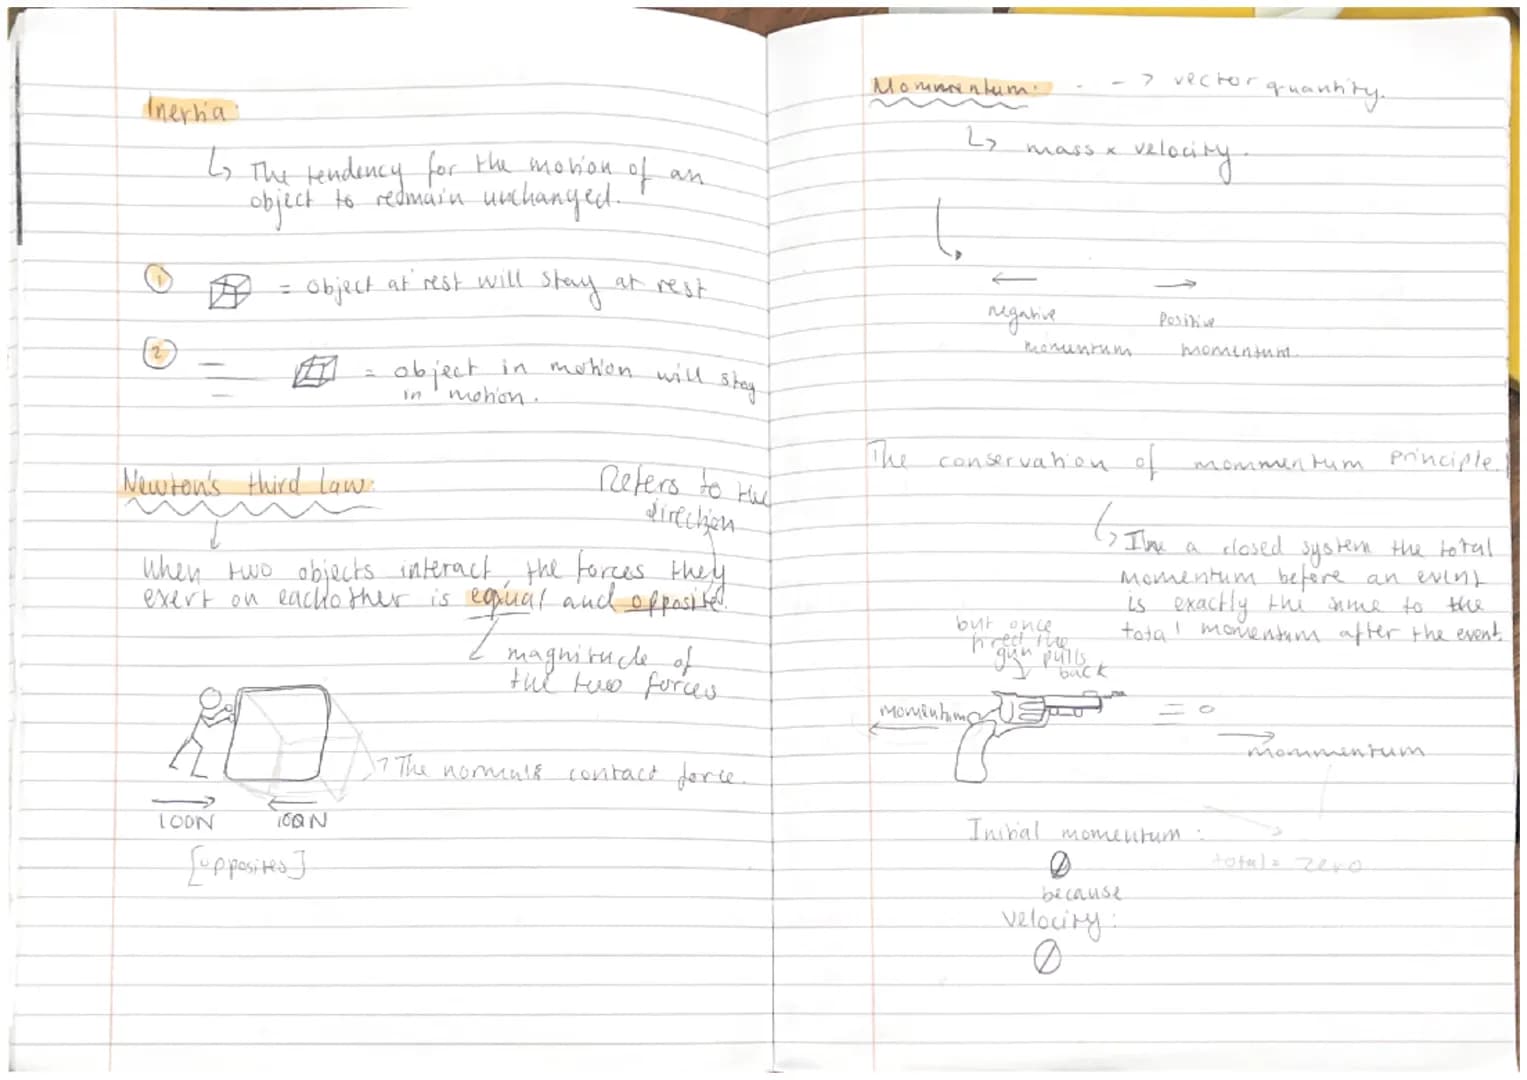 Inertia:
↳ The tendency for the motion of an
object to redmain unchanged.
① = object at rest will stay at rest
② = object in motion will stay
in motion.
Newton's third law:
Refers to the
direction
When two objects interact, the forces they
exert on eachother is equal and opposite.
magnitude of
the two forces
The normal contact force.
100N 100N
[opposites]
Mommentum: - - → vector quantity.
↳ mass x velocity.
← →
negative positive
momentum momentum.
The conservation of mommentum principle.
↳ In a closed system the total
momentum before an event
is exactly the same to the
total momentum after the event
but once
fired the
gun pulls
back
momentum
mommentum
Initial momentum :
0
because
velocity:
0
total = zero